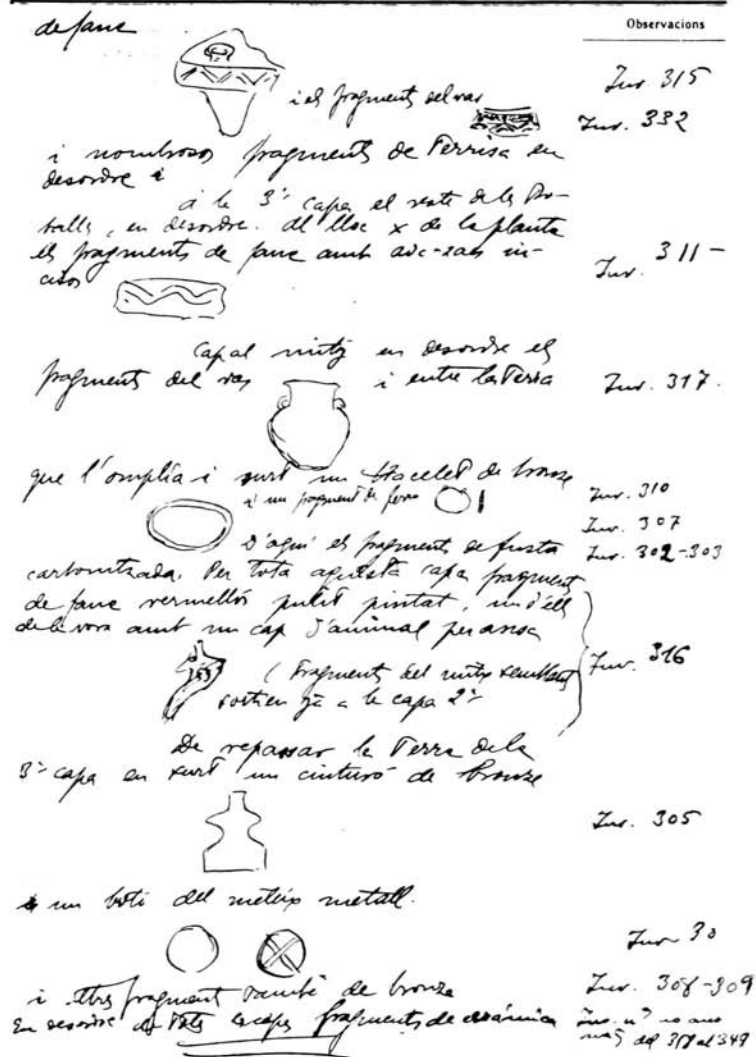 Observacions
de fanc
Inv. 315
i els fragments del vas
Inv. 332
i nombrosos fragments de terrisa en
desordre i
a la 3ª capa, el reste de les tro-
balles, en desordre. Al lloc x de la planta
els fragments de fanc amb zic-zacs in-
cisos
Inv. 311 -
Cap al mitg en desordre els
fragments del vas i entre la terra Inv. 317.
que l'omplia i surt un braçalet de bronze
i un fragment de ferro Inv. 310
Inv. 307
D'aquí els fragments de fusta Inv. 302-303
carbonitzada. Per tota aquesta capa fragments
de fanc vermellós pulit pintat, un d'ells
de la vora amb un cap d'animal per ansa
Inv. 316
(Fragments del mitg semblants
sortien ja a la capa 2ª
De repassar la terra de la
3ª capa en surt un cinturó de bronze
Inv. 305
un botó del meteix metall.
Inv 30
i altres fragments també de bronze Inv. 308-309
En desordre de totes les capes fragments de ceràmica
Inv. nº
del 318 al 349